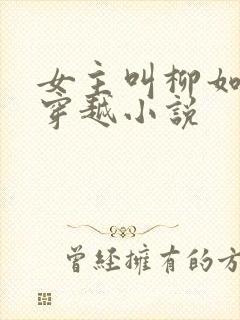 女主叫柳如
穿越小说
曾經擁有的方